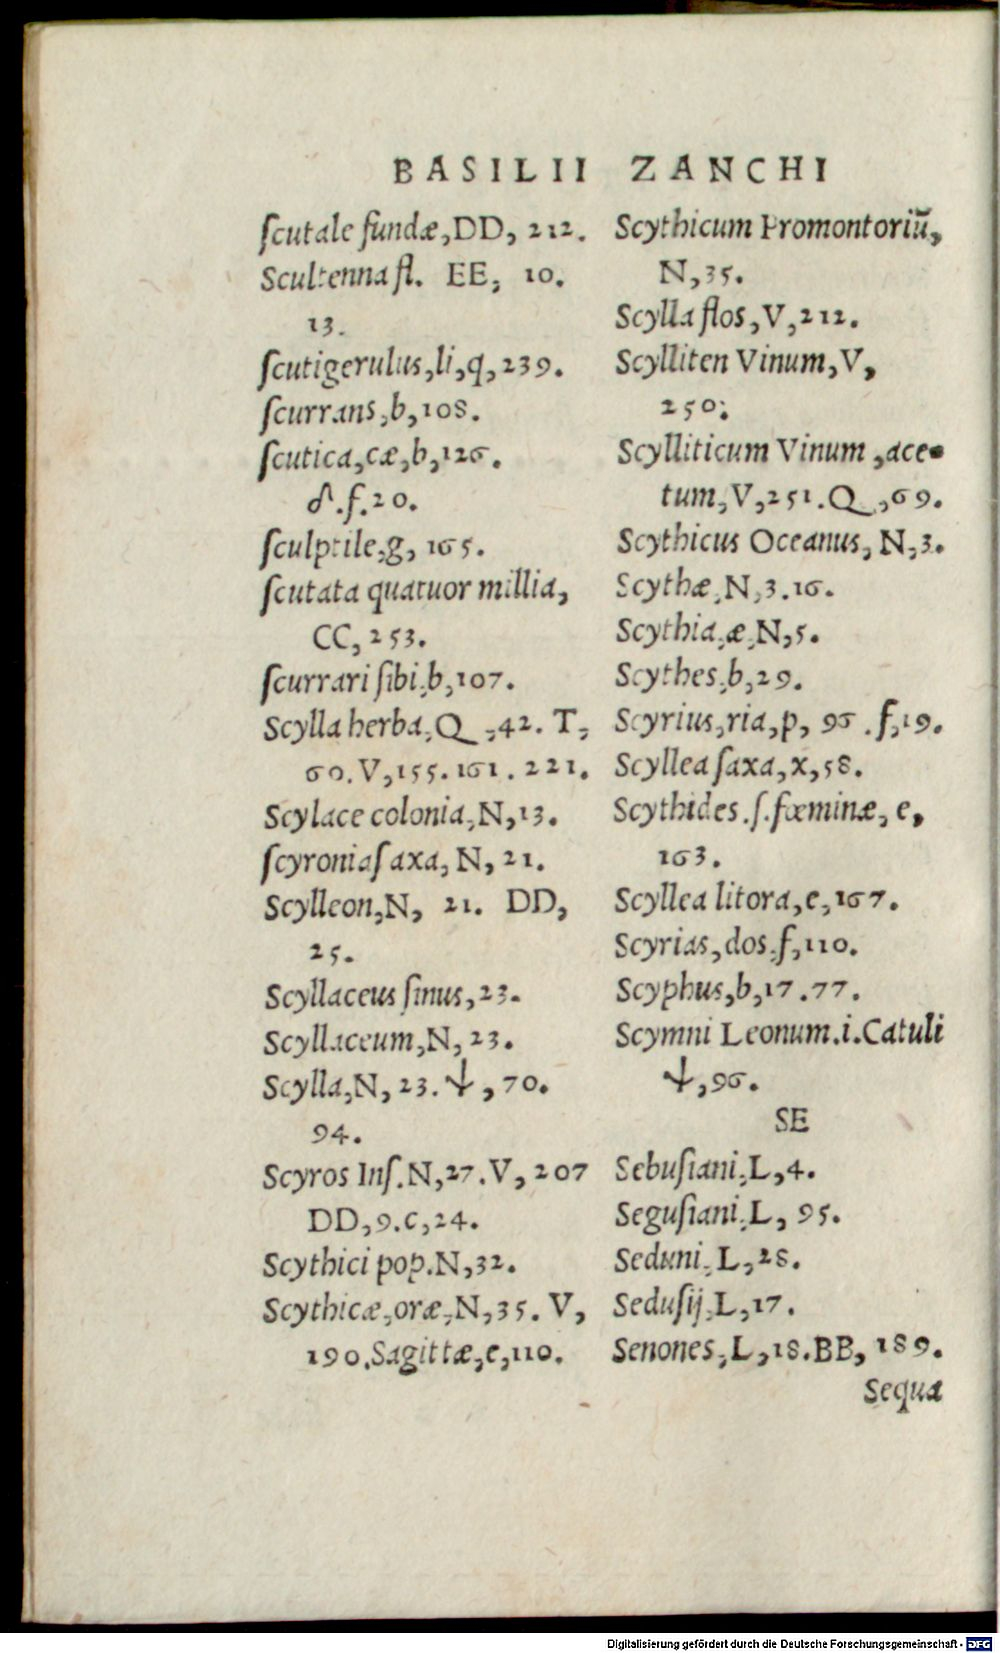 BASILII ZANCHI
ſcutale fundæ, DD, 212.
Scultenna fl. EE, 10.
13.
ſcutigerulus, li, q, 239.
ſcurrans, b, 108.
ſcutica, cæ, b, 126.
♂. f. 20.
ſculptile, g, 165.
ſcutata quatuor millia,
CC, 253.
ſcurrari ſibi, b, 107.
Scylla herba, Q, 42. T,
60. V, 155. 161. 221.
Scylace colonia, N, 13.
ſcyronia ſaxa, N, 21.
Scylleon, N, 21. DD,
25.
Scyllaceus ſinus, 23.
Scyllaceum, N, 23.
Scylla, N, 23. ↓, 70.
94.
Scyros Inſ. N, 27. V, 207
DD, 9. c, 24.
Scythici pop. N, 32.
Scythicæ, oræ, N, 35. V,
190. Sagittæ, e, 110.
Scythicum Promontoriū,
N, 35.
Scylla flos, V, 212.
Scylliten Vinum, V,
250;
Scylliticum Vinum, ace-
tum, V, 251. Q, 69.
Scythicus Oceanus, N, 3.
Scythæ, N, 3. 16.
Scythia, æ, N, 5.
Scythes, b, 29.
Scyrius, ria, p, 96. f, 19.
Scyllea ſaxa, x, 58.
Scythides. ſ. fœminæ, e,
163.
Scyllea litora, e, 167.
Scyrias, dos, f, 110.
Scyphus, b, 17. 77.
Scymni Leonum. i. Catuli
↓, 96.
SE
Sebuſiani, L, 4.
Seguſiani, L, 95.
Seduni, L, 28.
Seduſij, L, 17.
Senones, L, 18. BB, 189.
Sequa
Digitalisierung gefördert durch die Deutsche Forschungsgemeinschaft - DFG